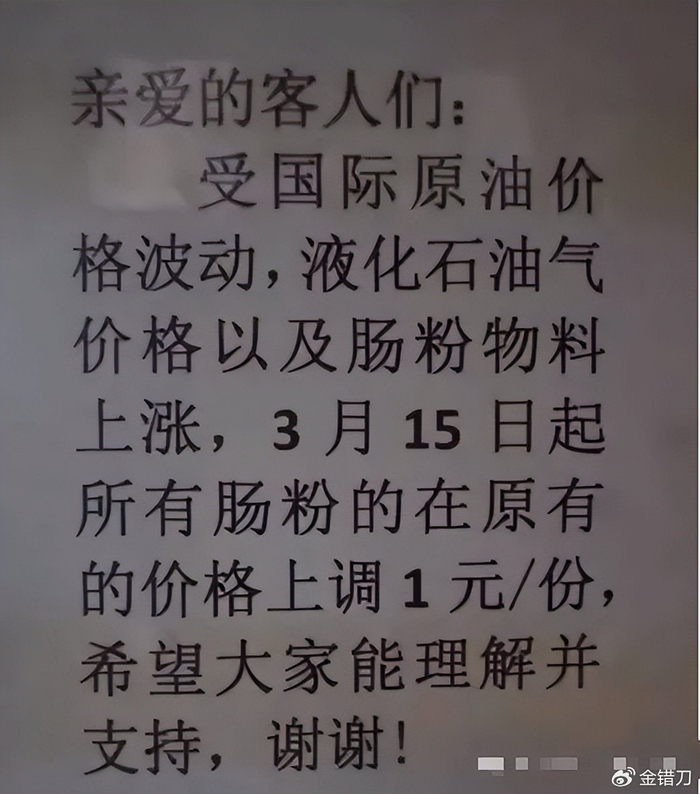 亲爱的客人们：
受国际原油价
格波动，液化石油气
价格以及肠粉物料
上涨，3月15日起
所有肠粉的在原有
的价格上调1元/份，
希望大家能理解并
支持，谢谢！
金错刀